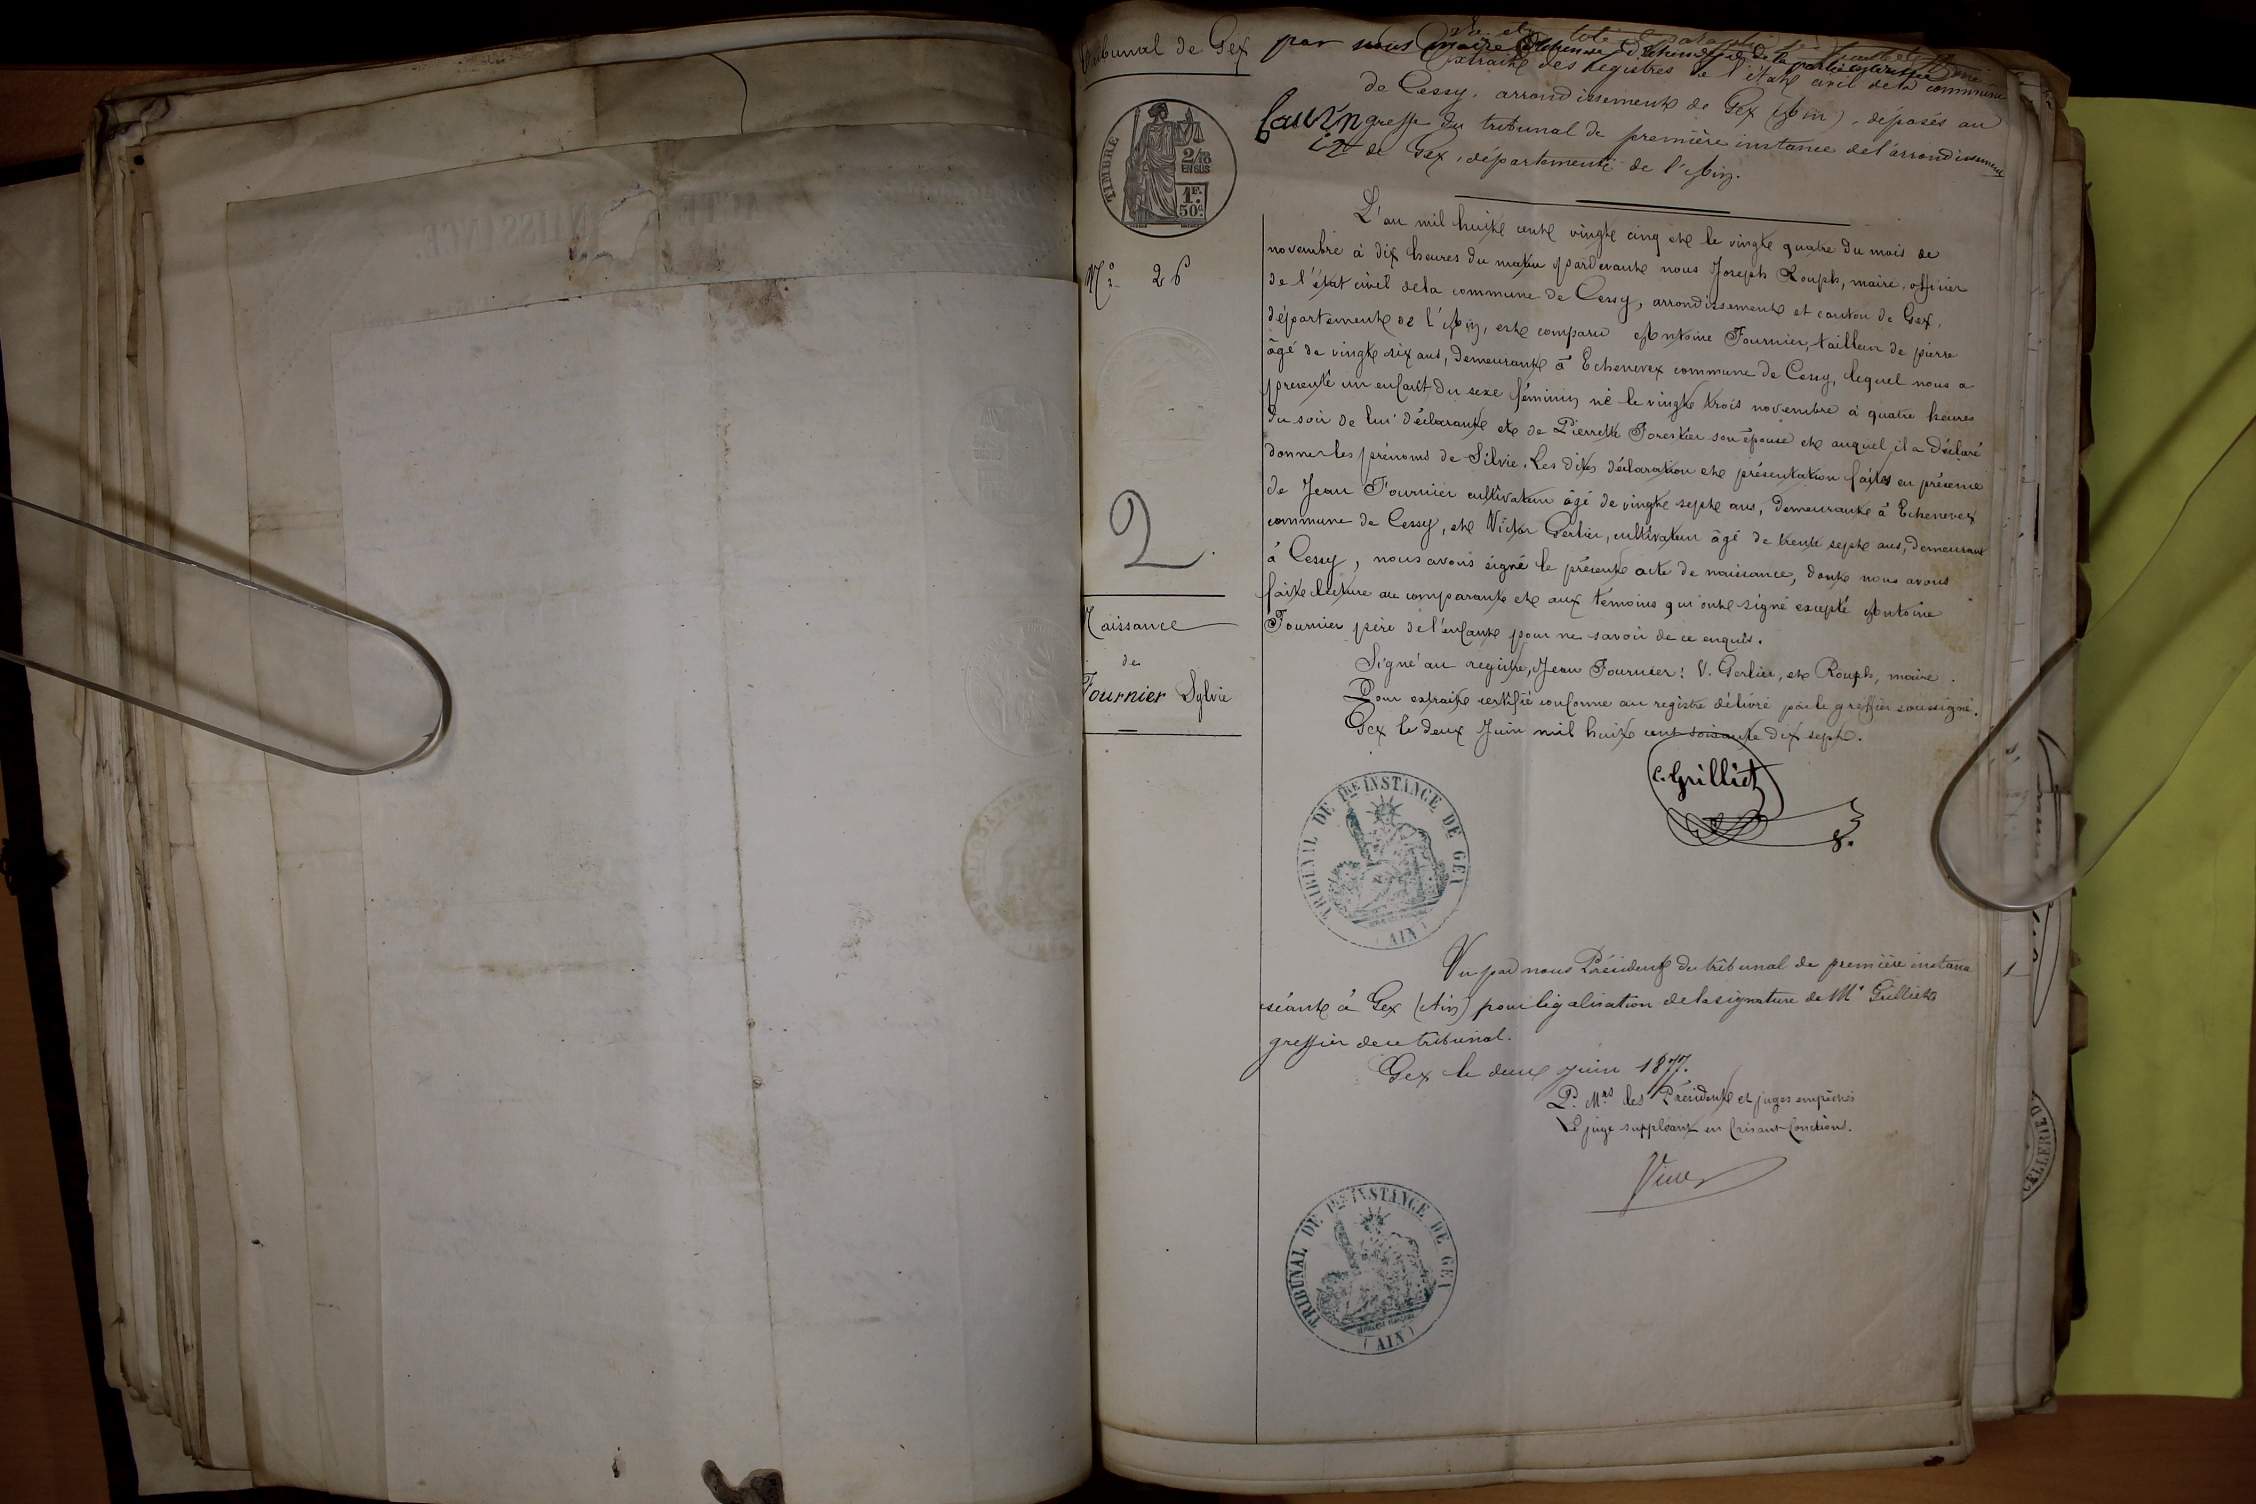 Tribunal de Gex
par nous maire
Extrait des Registres de l'état civil de la commune
de Cessy, arrondissement de Gex (Ain), déposés au
greffe du tribunal de première instance de l'arrondissement
de Gex, département de l'Ain.
TIMBRE
2/10
EN SUS
1F.
50c.
N° 26
2
Naissance
de
Fournier Sylvie
L'an mil huit cent vingt cinq et le vingt quatre du mois de
novembre à dix heures du matin pardevant nous Joseph Rouph, maire, officier
de l'état civil de la commune de Cessy, arrondissement et canton de Gex,
département de l'Ain, est comparu Antoine Fournier, tailleur de pierre
âgé de vingt six ans, demeurant à Echenevex commune de Cessy, lequel nous a
présenté un enfant du sexe féminin né le vingt trois novembre à quatre heures
du soir de lui déclarant et de Pierrette Forestier son épouse et auquel il a déclaré
donner les prénoms de Silvie. Les dites déclaration et présentation faites en présence
de Jean Fournier cultivateur âgé de vingt sept ans, demeurant à Echenevex
commune de Cessy, et Victor Gerlier, cultivateur âgé de trente sept ans, demeurant
à Cessy, nous avons signé le présent acte de naissance, dont nous avons
fait lecture au comparant et aux témoins qui ont signé excepté Antoine
Fournier père de l'enfant pour ne savoir de ce enquis.
Signé au registre, Jean Fournier: V. Gerlier, et Rouph, maire.
Pour extrait certifié conforme au registre délivré par le greffier soussigné.
Gex le deux Juin mil huit cent soixante dix sept.
C. Grilliet
TRIBUNAL DE 1RE INSTANCE DE GEX
(AIN)
Vu par nous Président du tribunal de première instance
séant à Gex (Ain) pour légalisation de la signature de Mr Grilliet
greffier de ce tribunal.
Gex le deux juin 1877.
P. Mrs les Président et juges empêchés
Le juge suppléant en faisant fonctions.
TRIBUNAL DE 1RE INSTANCE DE GEX
(AIN)